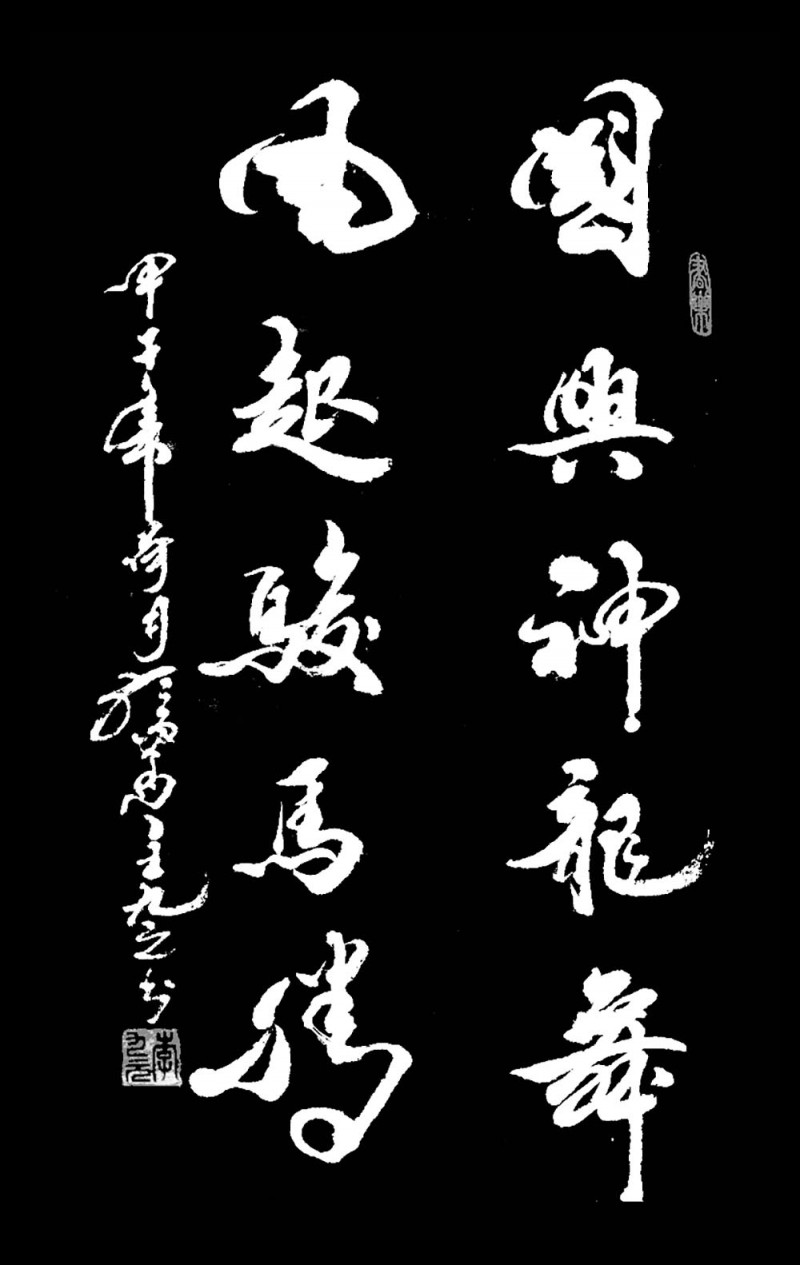 國興神龍舞
風起駿馬騰
甲子年荷月主九之书